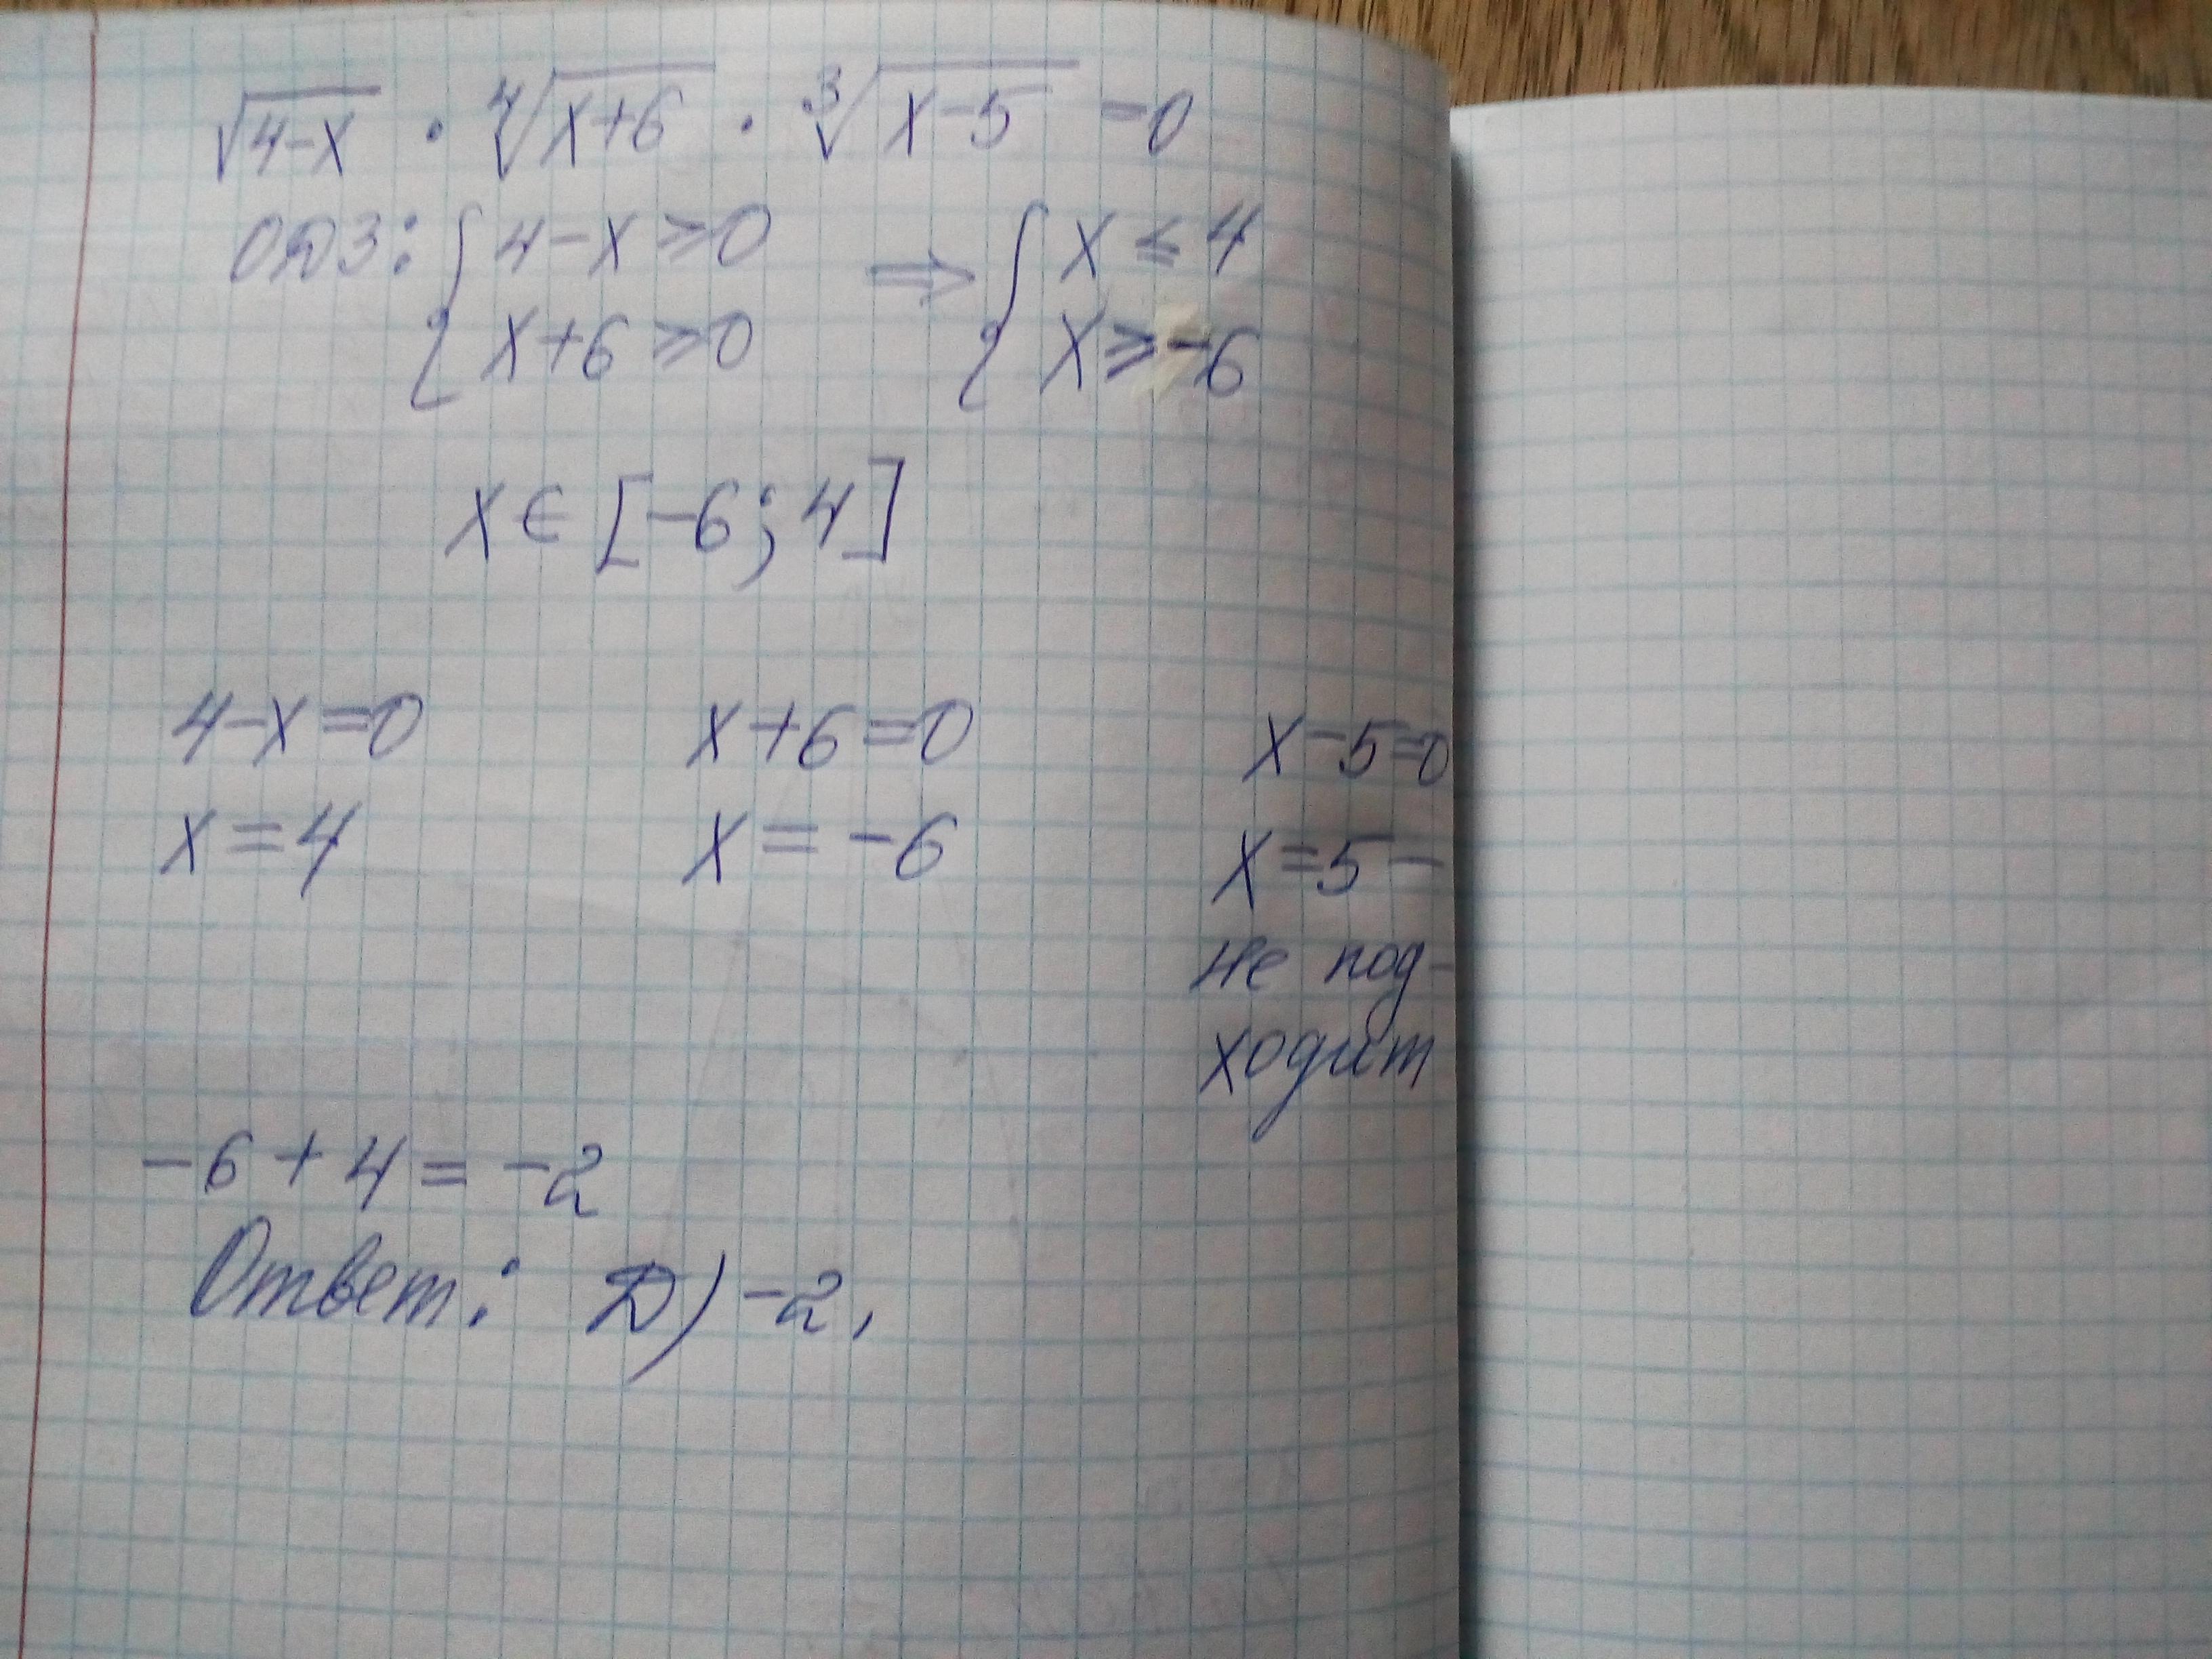 √4-x · ⁴√x+6 · ³√x-5 =0
ОДЗ: { 4-x ≥0 ⇒ { x ≤ 4
x+6 ≥0 x ≥ -6
x ∈ [-6; 4]
4-x=0 x+6=0 x-5=0
x=4 x=-6 x=5 -
не под-
ходит
-6+4= -2
Ответ: Д) -2,